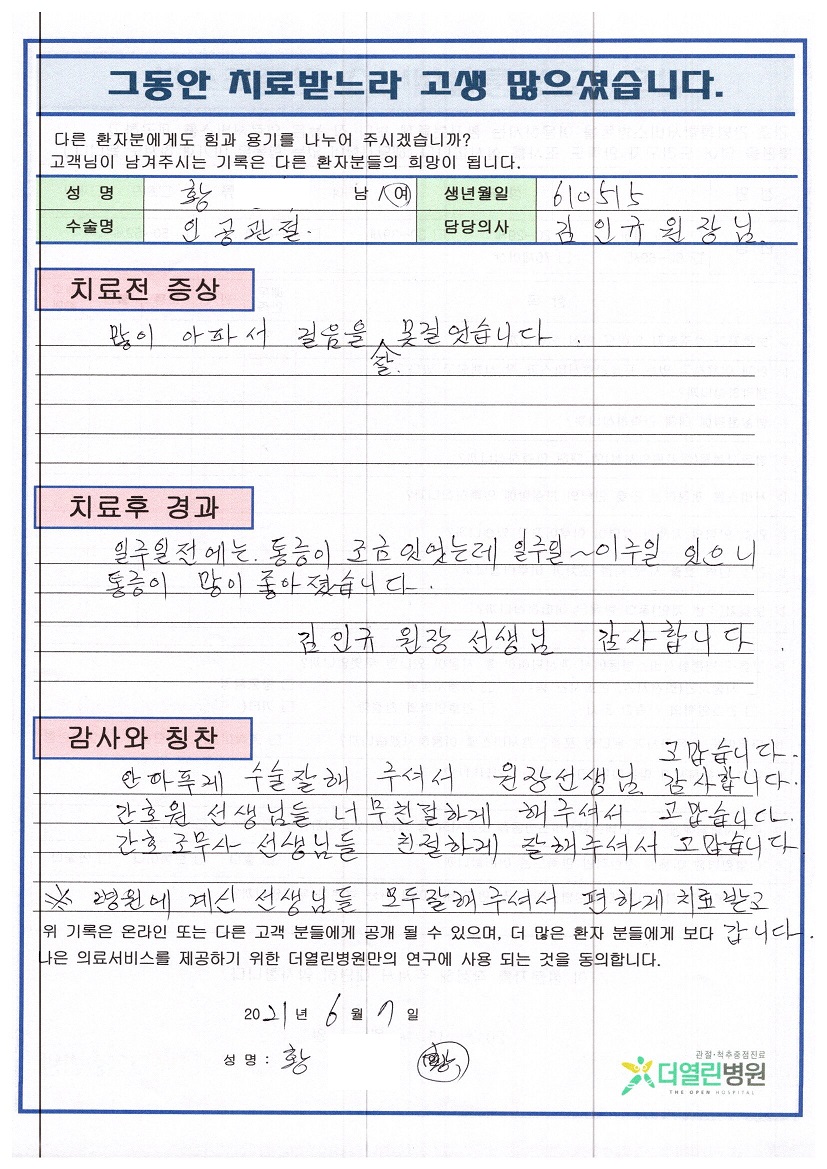 그동안 치료받느라 고생 많으셨습니다.
다른 환자분에게도 희망과 용기를 나누어 주시겠습니까?
고객님이 남겨주시는 기록은 다른 환자분들의 희망이 됩니다.
성 명 황 남 / 여 생년월일 610515
수술명 인공관절. 담당의사 김인규원장님.
치료전 증상
많이 아파서 걸음을 잘 못걸었습니다.
치료후 경과
일주일전에는. 통증이 조금 있었는데 일주일~이주일 있으니
통증이 많이 좋아졌습니다.
김인규 원장 선생님 감사합니다.
감사와 칭찬
고맙습니다.
안아푸게 수술잘해 주셔서 원장선생님. 감사합니다.
간호원 선생님들 너무친절하게 해주셔서 고맙습니다.
간호조무사 선생님들 친절하게 잘해주셔서 고맙습니다
※ 병원에 계신 선생님들 모두잘해주셔서 편하게 치료받고
갑니다.
위 기록은 온라인 또는 다른 고객 분들에게 공개 될 수 있으며, 더 많은 환자 분들에게 보다
나은 의료서비스를 제공하기 위한 더열린병원만의 연구에 사용 되는 것을 동의합니다.
2021년 6월 7일
성 명 : 황 황
관절·척추중점진료
더열린병원
THE OPEN HOSPITAL